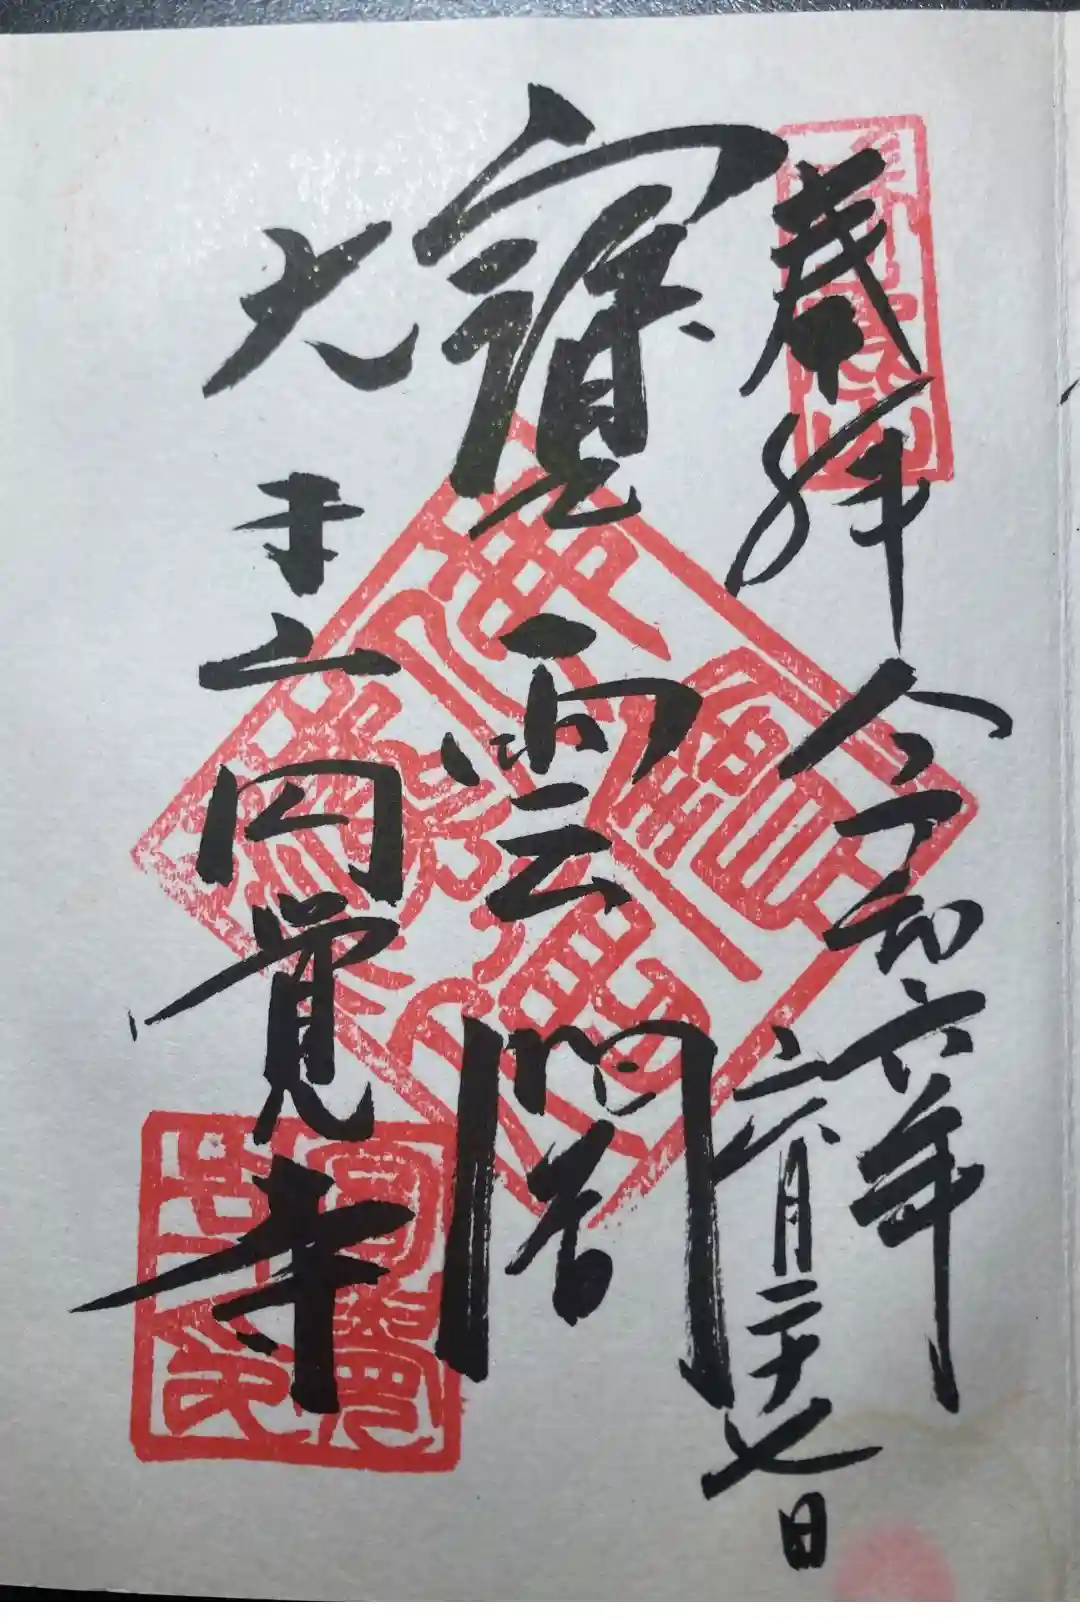 奉拝 令和六年
六月二十七日
寶雲閣
大本山円覚寺